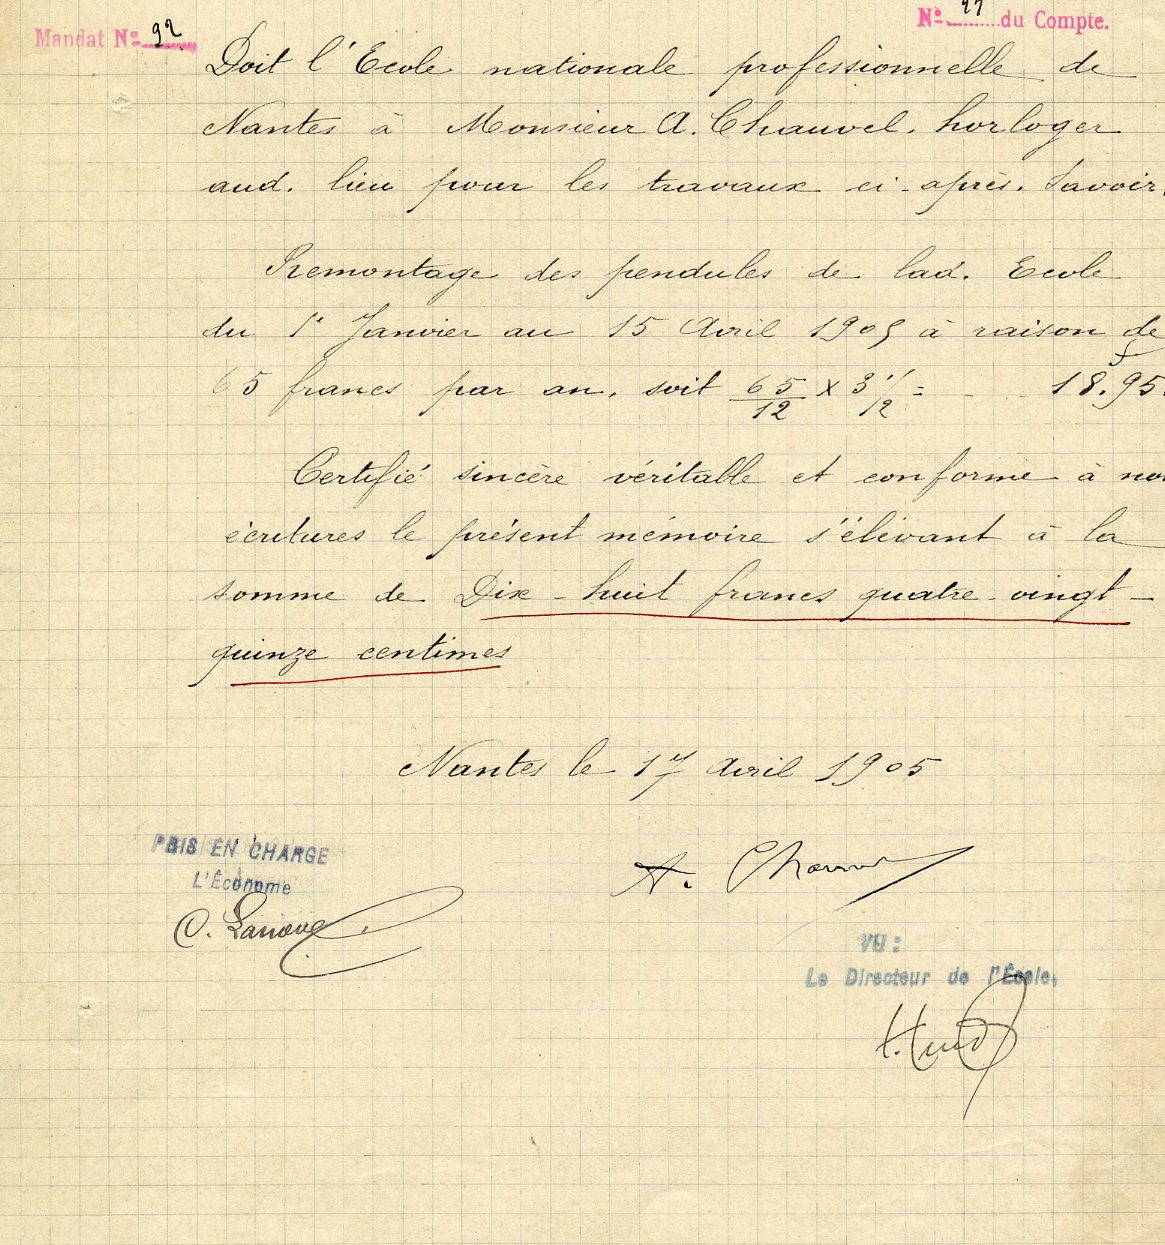 Mandat Nº 92
Nº 27 du Compte.
Doit l'Ecole nationale professionnelle de
Nantes à Monsieur A. Chauvel, horloger
aud. lieu pour les travaux ci-après. Savoir.
Remontage des pendules de lad. Ecole
du 1er Janvier au 15 Avril 1905 à raison de
65 francs par an, soit 65/12 x 3 1/2 = 18f,95.
Certifié sincère véritable et conforme à nos
écritures le présent mémoire s'élevant à la
somme de Dix-huit francs quatre-vingt-
quinze centimes
Nantes le 17 Avril 1905
PRIS EN CHARGE
L'Économe
A.
VU :
Le Directeur de l'École,